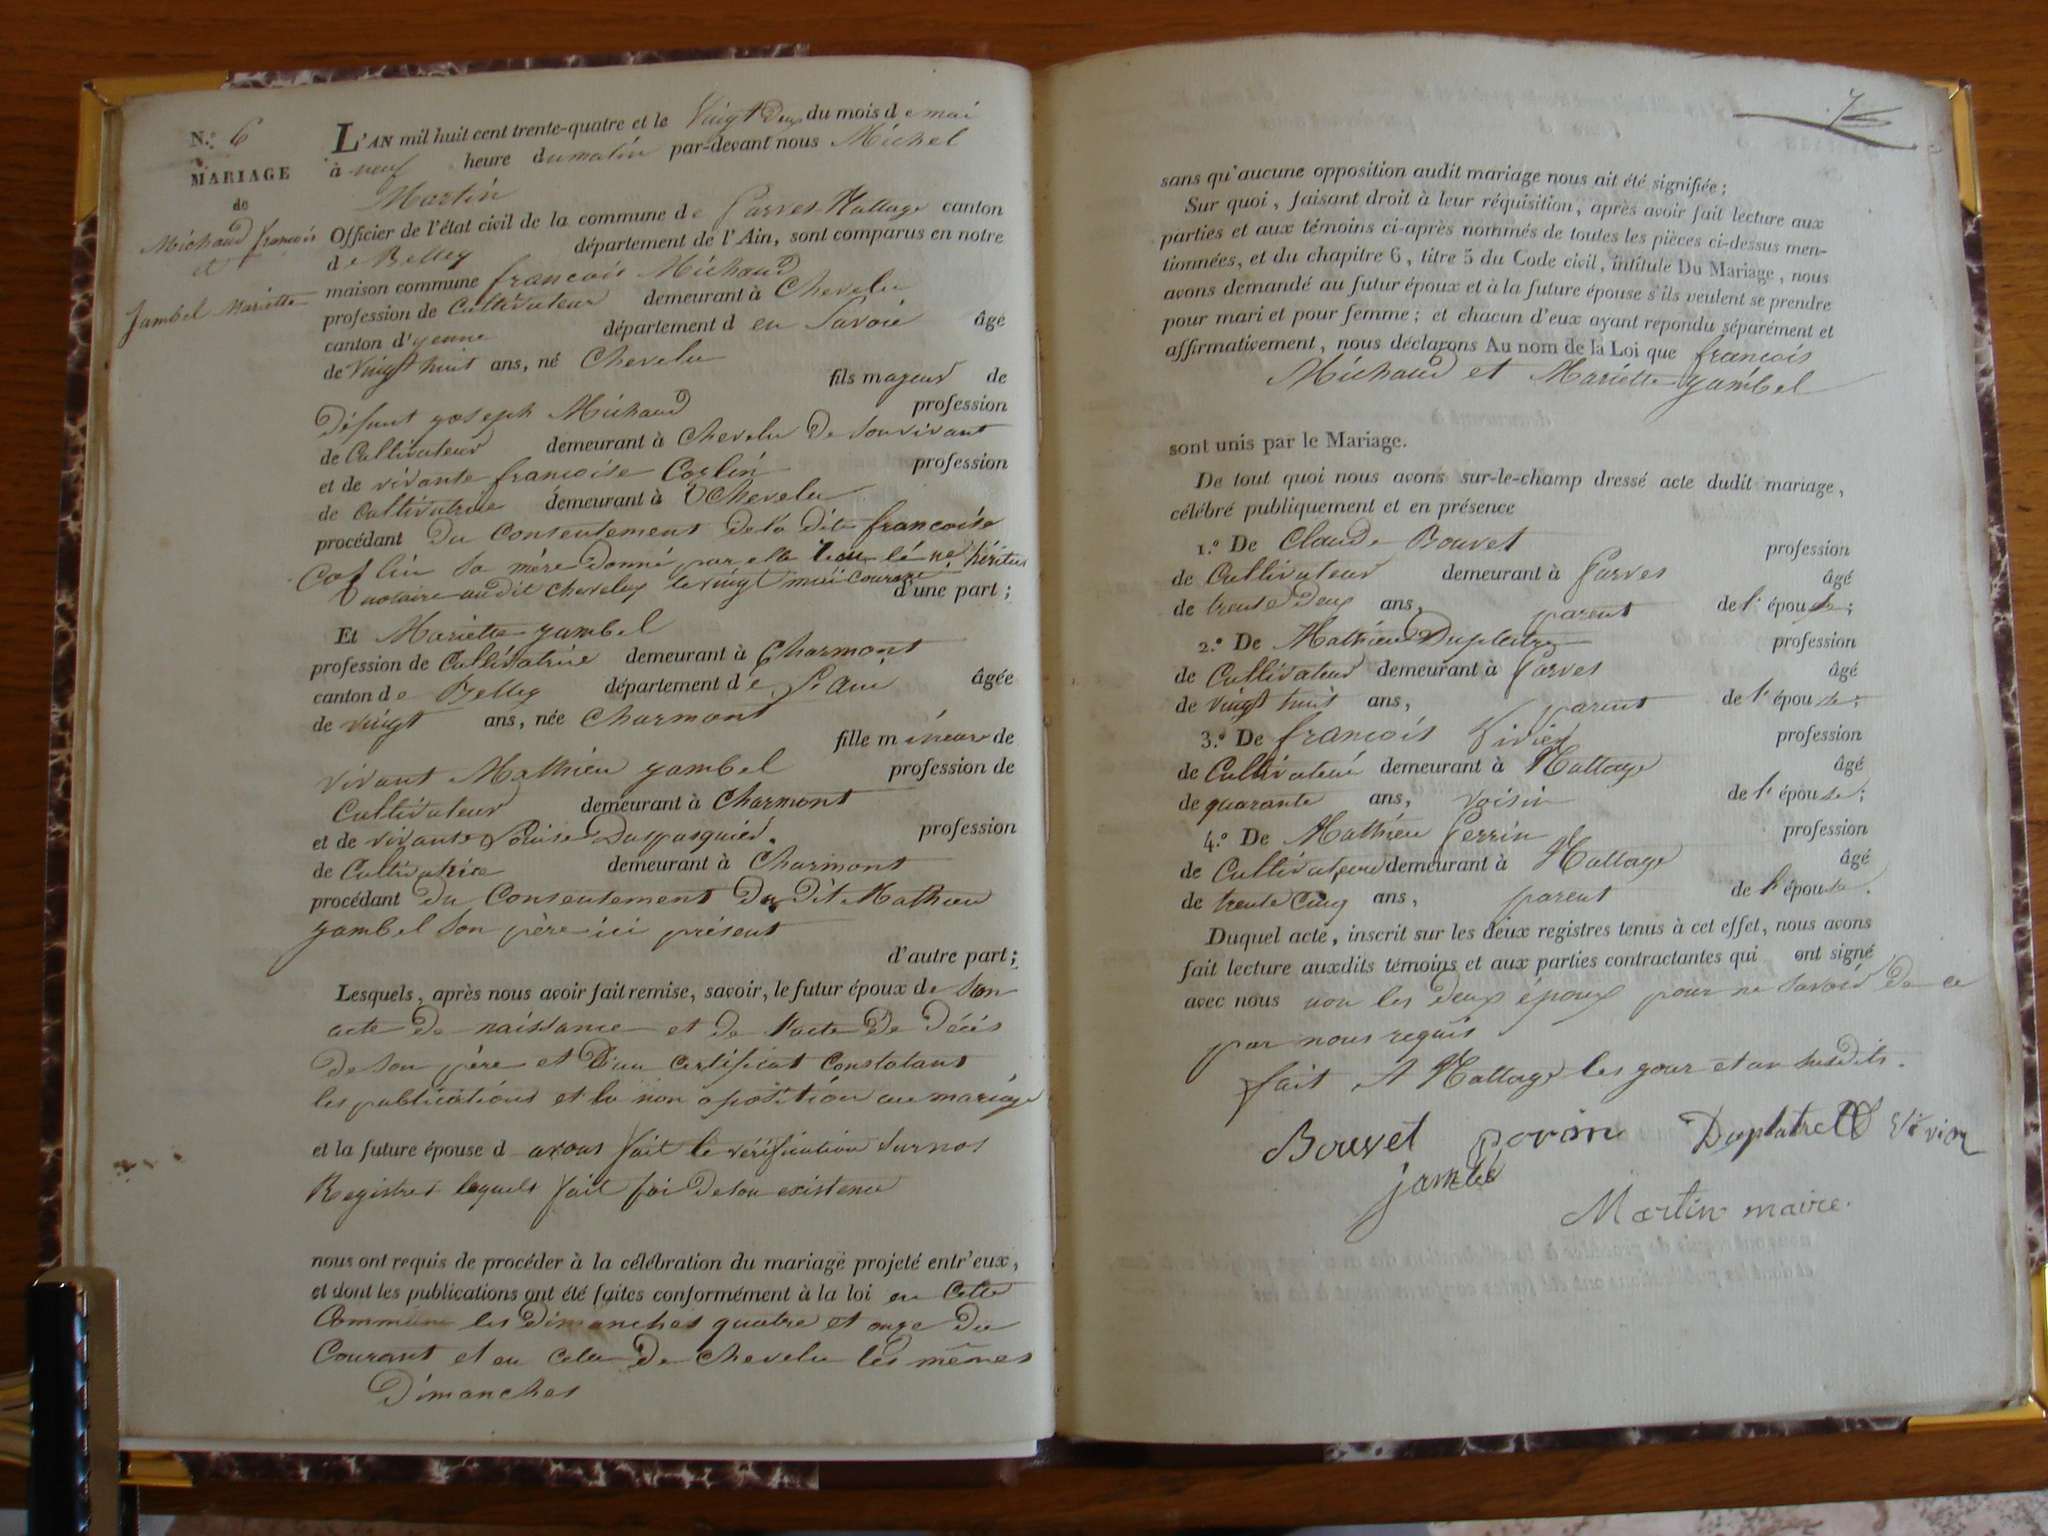 N.º 6
MARIAGE
de
Michaud françois
et
Jambel Mariette
L'AN mil huit cent trente-quatre et le Vingt Deux du mois de mai
à neuf heure du matin par-devant nous Michel
Martin
Officier de l'état civil de la commune de Parves Nattage canton
de Belley département de l'Ain, sont comparus en notre
maison commune françois Michaud
profession de Cultivateur demeurant à Chevelu
canton d'yenne département d en Savoie âgé
de Vingt huit ans, né Chevelu
fils majeur de
défunt joseph Michaud profession
de Cultivateur demeurant à Chevelu De Son vivant
et de vivante françoise Carlin profession
de Cultivatrice demeurant à Chevelu
procédant du Consentement de la dite françoise
Carlin Sa mère Donné par elle
notaire audit chevelu le vingt mai courant d'une part ;
Et Mariette jambel
profession de Cultivatrice demeurant à Charmont
canton de Belley département de L'ain âgée
de vingt ans, née Charmont
fille mineure de
vivant Mathieu jambel profession de
Cultivateur demeurant à Charmont
et de vivante Louise Duspasquier profession
de Cultivatrice demeurant à Charmont
procédant du Consentement Du Dit Mathieu
jambel Son père ici présent
d'autre part ;
Lesquels, après nous avoir fait remise, savoir, le futur époux de Son
acte De naissance et de l'acte De Décès
De Son père et D'un Certificat Constatant
les publications et la non oposition au mariage
et la future épouse d avons fait le vérification Sur nos
Registres lequels fait foi De Son existence
nous ont requis de procéder à la célébration du mariage projeté entr'eux,
et dont les publications ont été faites conformément à la loi en Cette
Commune les Dimanches quatre et onze Du
Courant et en Celle De Chevelu les mêmes
Dimanches
7
sans qu'aucune opposition audit mariage nous ait été signifiée ;
Sur quoi, faisant droit à leur réquisition, après avoir fait lecture aux
parties et aux témoins ci-après nommés de toutes les pièces ci-dessus men-
tionnées, et du chapitre 6, titre 5 du Code civil, intitulé Du Mariage, nous
avons demandé au futur époux et à la future épouse s'ils veulent se prendre
pour mari et pour femme ; et chacun d'eux ayant repondu séparément et
affirmativement, nous déclarons Au nom de la Loi que françois
Michaud et Mariette jambel
sont unis par le Mariage.
De tout quoi nous avons sur-le-champ dressé acte dudit mariage,
célébré publiquement et en présence
1.º De Claude Bouvet profession
de Cultivateur demeurant à Parves âgé
de trente Deux ans, parent de l'épouse ;
2.º De Mathieu Duplatre profession
de Cultivateur demeurant à Parves âgé
de vingt huit ans, parent de l'épouse ;
3.º De françois Vivier profession
de Cultivateur demeurant à Nattage âgé
de quarante ans, voisin de l'épouse ;
4.º De Mathieu Perrin profession
de Cultivateur demeurant à Nattage âgé
de trente Cinq ans, parent de l'épouse.
Duquel acte, inscrit sur les deux registres tenus à cet effet, nous avons
fait lecture auxdits témoins et aux parties contractantes qui ont signé
avec nous non les Deux époux pour ne Savoir De ce
par nous requis
fait A Nattage les jour et an Susdits.
Bouvet Duplatre
Martin maire.